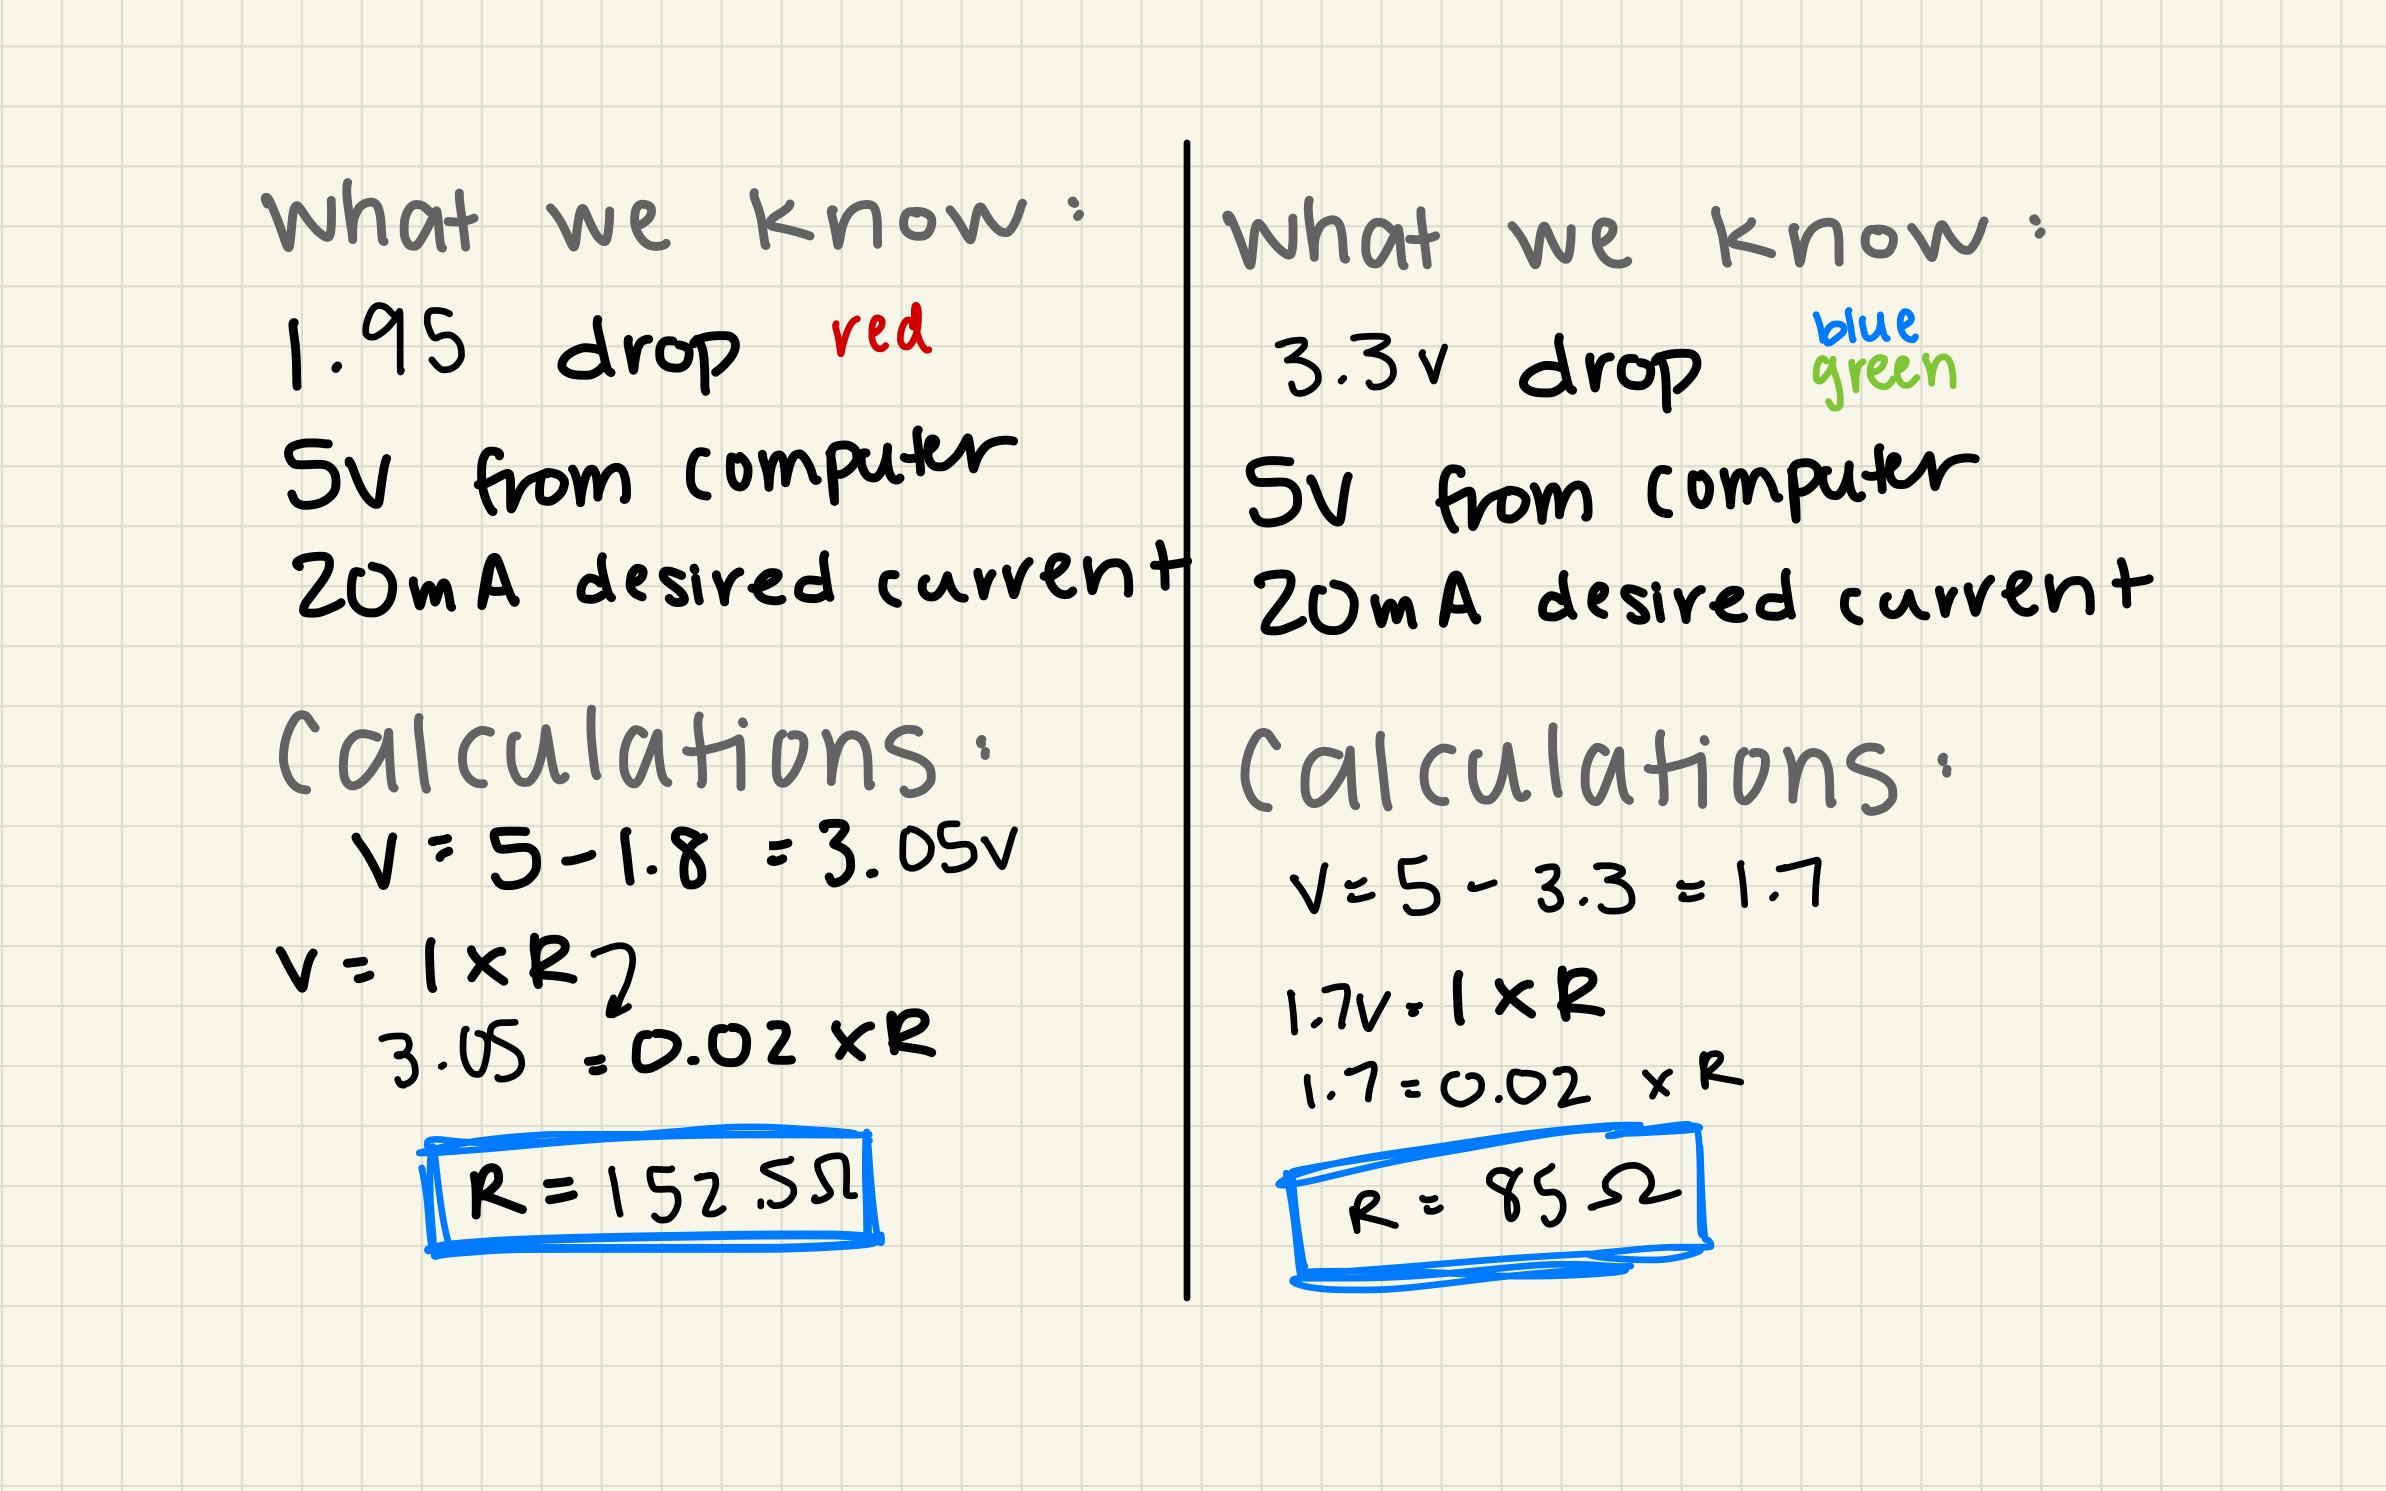 What we know:
1.95 drop red
5V from computer
20mA desired current
Calculations:
V = 5 - 1.8 = 3.05v
V = I x R
3.05 = 0.02 x R
R = 152.5Ω
What we know:
3.3v drop blue
green
5V from computer
20mA desired current
Calculations:
V = 5 - 3.3 = 1.7
1.7v = I x R
1.7 = 0.02 x R
R = 85Ω